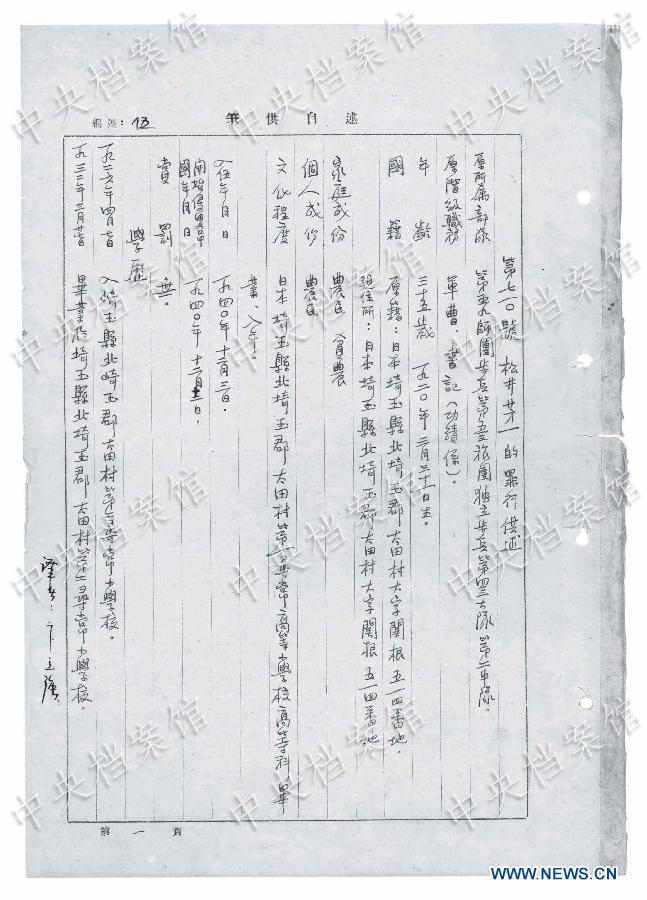 筆供自述
編號：13
第七一〇號 松井芽一的罪行供述
原所属部隊 第五九師團步兵第五三旅團独立步兵第四三大隊第二中隊。
原階級職務 軍曹、書記（功績係）。
年齡 三十五歲 一九二〇年三月三十一日生。
國籍 原籍：日本埼玉縣北埼玉郡太田村大字関根五一四番地。
現住所：日本埼玉縣北埼玉郡太田村大字関根五一四番地
家庭成份 農民 貧農
個人成份 農民
文化程度 日本埼玉縣北埼玉郡太田村第二尋常高等小學校高等科畢
業、八年。
入伍年月日 一九四〇年十二月三日。
開始侵畧中國年月日 一九四〇年十二月 日。
賞罰 無。
學歷
一九二六年四月一日 入埼玉縣北埼玉郡太田村第二尋常小學校。
一九三二年三月廿 日 畢業於埼玉縣北埼玉郡太田村第二尋常小學校。
譯者：卞立強
第一頁
中央档案馆
WWW.NEWS.CN